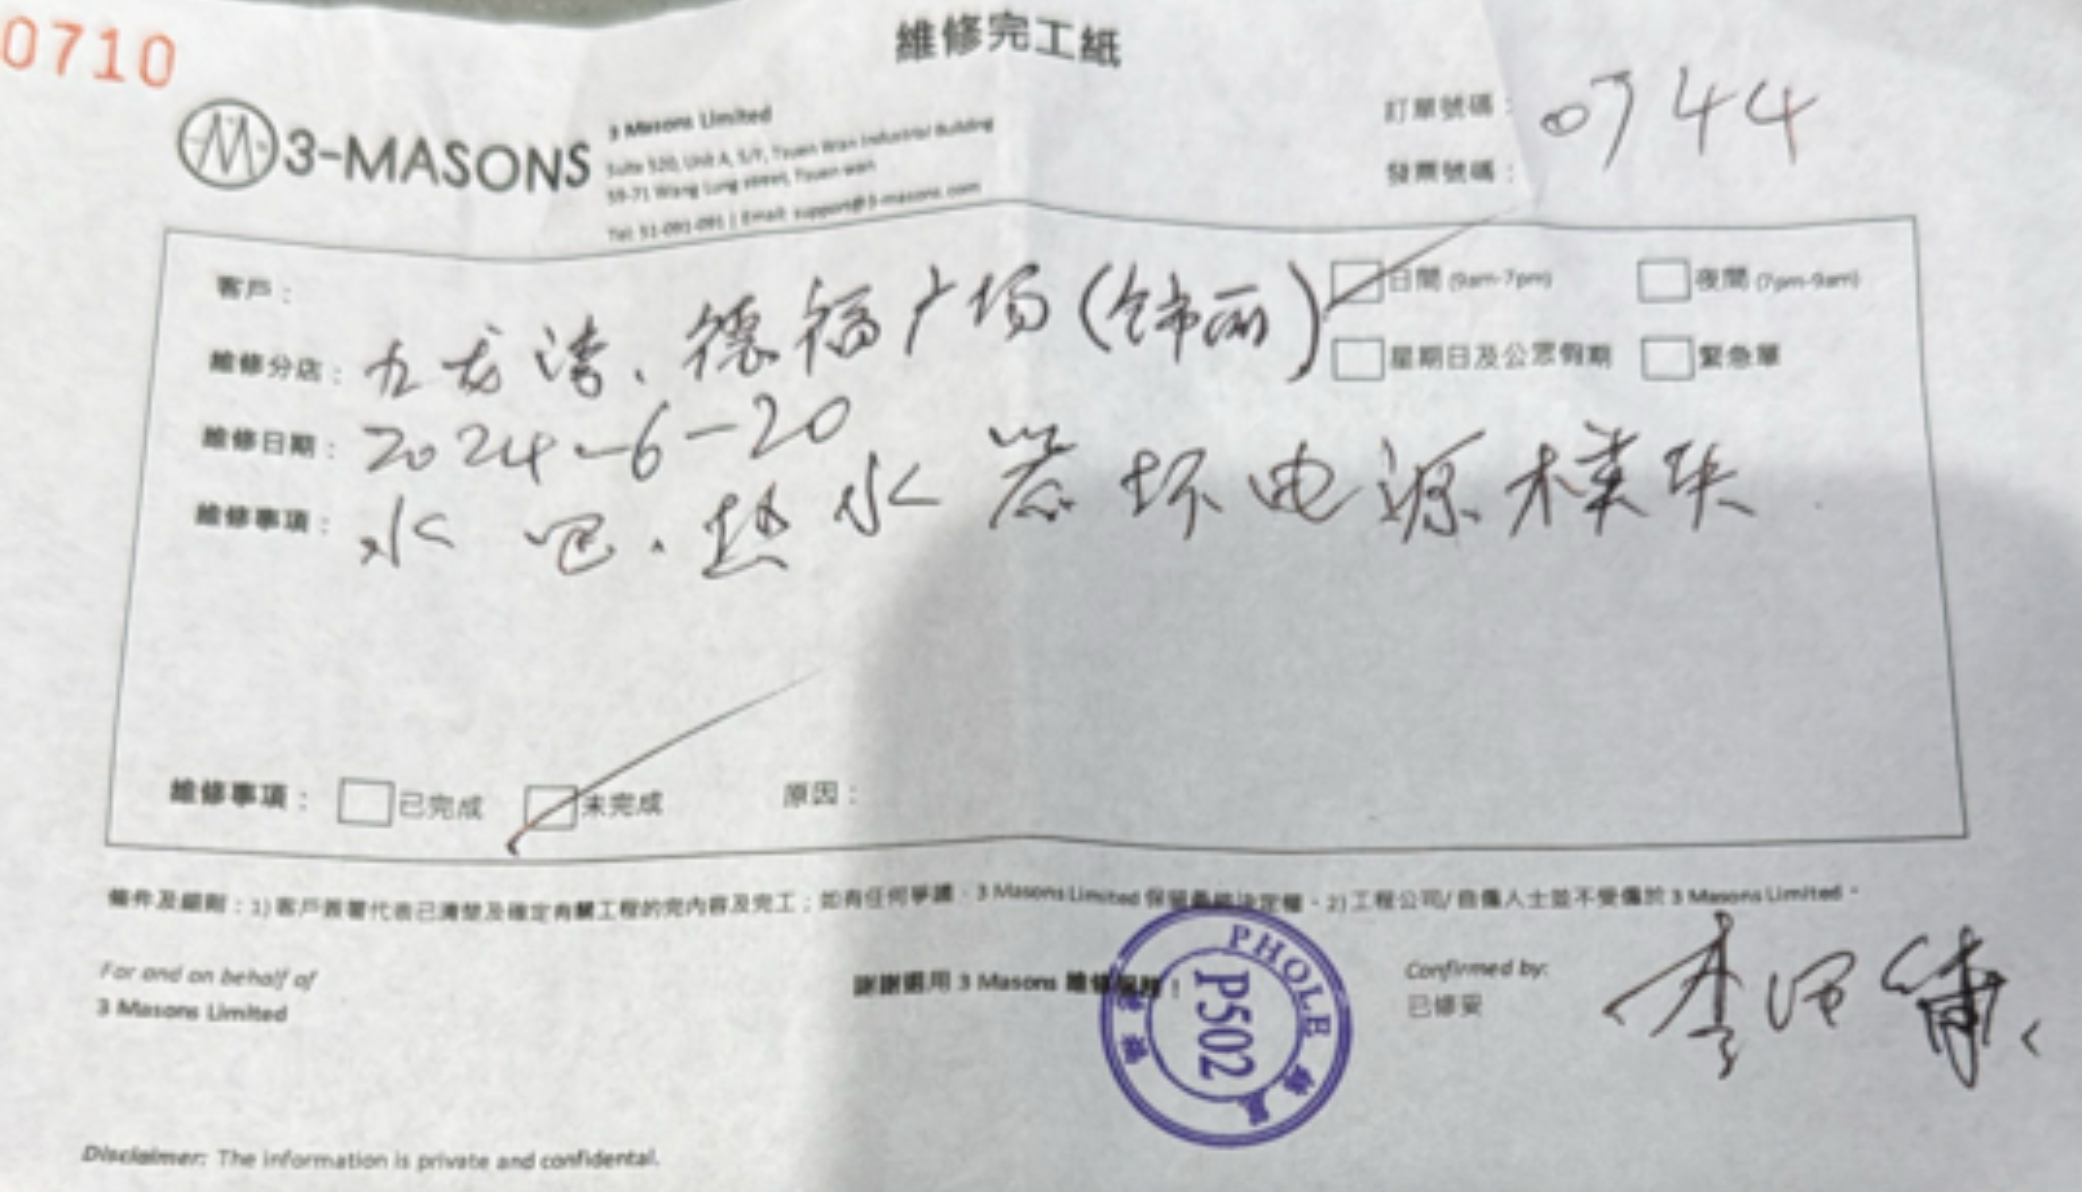 0710
維修完工紙
3-MASONS
3 Masons Limited
Suite 520, Unit A, 5/F, Tsuen Wan Industrial Building
59-71 Wang Lung street, Tsuen wan
Tel: 51-091-091 | Email: support@3-masons.com
訂單號碼： 0744
發票號碼：
客戶：
日間 (9am-7pm)
夜間 (7pm-9am)
維修分店： 九龙湾、德福广场(饰丽)
星期日及公眾假期
緊急單
維修日期： 2024-6-20
維修事項： 水吧、热水器坏电源模块
維修事項： 已完成 未完成 原因：
條件及細則：1)客戶簽署代表已清楚及確定有關工程的完內容及完工；如有任何爭議，3 Masons Limited 保留最終決定權。2)工程公司/自僱人士並不受僱於 3 Masons Limited。
For and on behalf of
3 Masons Limited
謝謝選用 3 Masons 維修服務！
PHOLE
P502
Confirmed by:
已修妥
Disclaimer: The information is private and confidental.